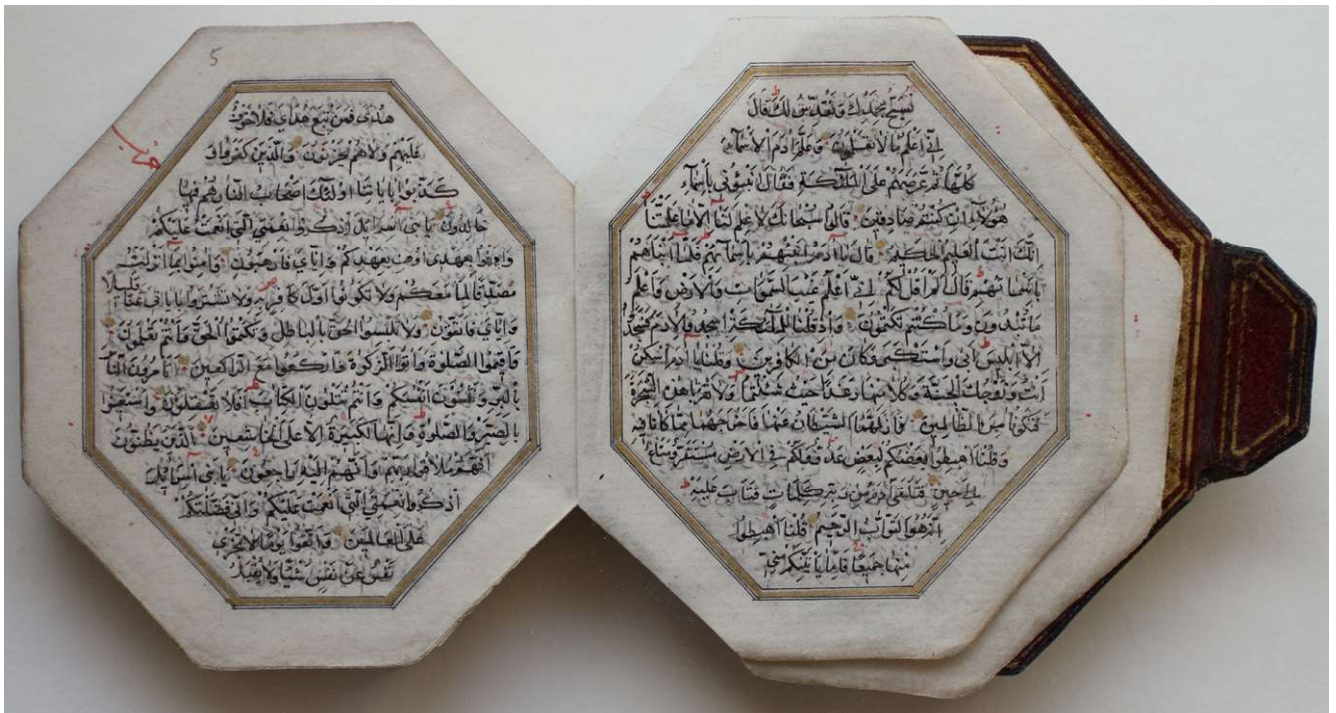 نسبح بحمدك ونقدس لك قال
اني اعلم ما لا تعلمون وعلم ادم الاسماء
كلها ثم عرضهم على الملئكة فقال انبؤني باسماء
هؤلاء ان كنتم صادقين قالوا سبحانك لا علم لنا الا ما علمتنا
انك انت العليم الحكيم قال يا ادم انبئهم باسمائهم فلما انباهم
باسمائهم قال الم اقل لكم اني اعلم غيب السموات والارض واعلم
ما تبدون وما كنتم تكتمون واذ قلنا للملئكة اسجدوا لادم فسجدوا
الا ابليس ابى واستكبر وكان من الكافرين وقلنا يا ادم اسكن
انت وزوجك الجنة وكلا منها رغدا حيث شئتما ولا تقربا هذه الشجرة
فتكونا من الظالمين فازلهما الشيطان عنها فاخرجهما مما كانا فيه
وقلنا اهبطوا بعضكم لبعض عدو ولكم في الارض مستقر ومتاع
الى حين فتلقى ادم من ربه كلمات فتاب عليه
انه هو التواب الرحيم قلنا اهبطوا
منها جميعا فاما ياتينكم مني
5
حزب
هدى فمن تبع هداي فلا خوف
عليهم ولا هم يحزنون والذين كفروا و
كذبوا باياتنا اولئك اصحاب النار هم فيها
خالدون يا بني اسرائل اذكروا نعمتي التي انعمت عليكم
واوفوا بعهدي اوف بعهدكم واياي فارهبون وامنوا بما انزلت
مصدقا لما معكم ولا تكونوا اول كافر به ولا تشتروا باياتي ثمنا قليلا
واياي فاتقون ولا تلبسوا الحق بالباطل وتكتموا الحق وانتم تعلمون
واقيموا الصلوة واتوا الزكوة واركعوا مع الراكعين اتامرون الناس
بالبر وتنسون انفسكم وانتم تتلون الكتاب افلا تعقلون واستعينوا
بالصبر والصلوة وانها لكبيرة الا على الخاشعين الذين يظنون
انهم ملاقوا ربهم وانهم اليه راجعون يا بني اسرائل
اذكروا نعمتي التي انعمت عليكم واني فضلتكم
على العالمين واتقوا يوما لا تجزى
نفس عن نفس شيئا ولا يقبل